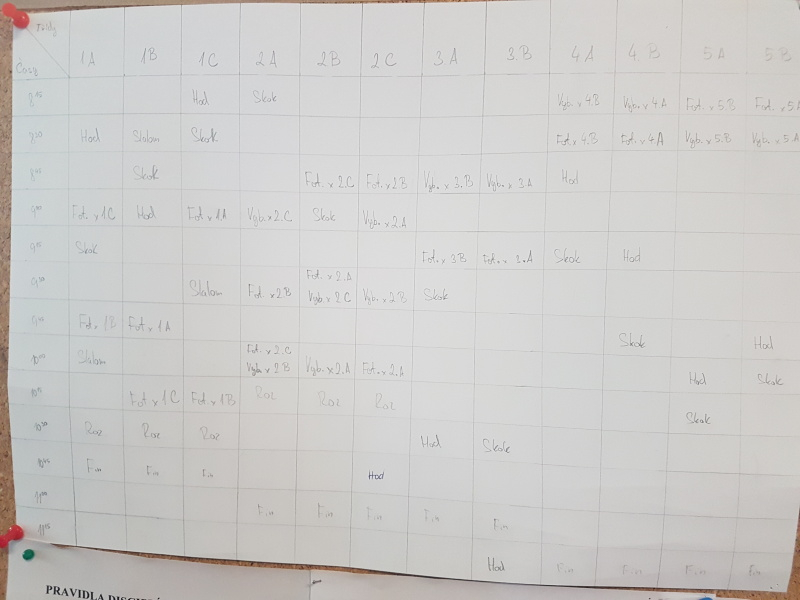 Třídy
Časy 1A 1B 1C 2A 2B 2C 3.A 3.B 4.A 4.B 5.A 5.B
8¹⁵ Hod Skok Vyb. x 4.B Vyb. x 4.A Fot. x 5.B Fot. x 5.A
8³⁰ Hod Slalom Skok Fot. x 4.B Fot. x 4.A Vyb. x 5.B Vyb. x 5.A
8⁴⁵ Skok Fot. x 2.C Fot. x 2B Vyb. x 3.B Vyb. x 3.A Hod
9⁰⁰ Fot. x 1C Hod Fot. x 1A Vyb. x 2.C Skok Vyb. x 2.A
9¹⁵ Skok Fot. x 3B Fot. x 3.A Skok Hod
9³⁰ Slalom Fot. x 2B Fot. x 2.A Vyb. x 2C Vyb. x 2.B Skok
9⁴⁵ Fot. x 1B Fot. x 1A Skok Hod
10⁰⁰ Slalom Fot. x 2.C Vyb. x 2B Vyb. x 2.A Fot. x 2.A Hod Skok
10¹⁵ Fot. x 1C Fot. x 1B Roz Roz Roz Skok
10³⁰ Roz Roz Roz Hod Skok
10⁴⁵ Fin Fin Fin Hod
11⁰⁰ Fin Fin Fin Fin Fin
11¹⁵ Hod Fin Fin Fin Fin
PRAVIDLA